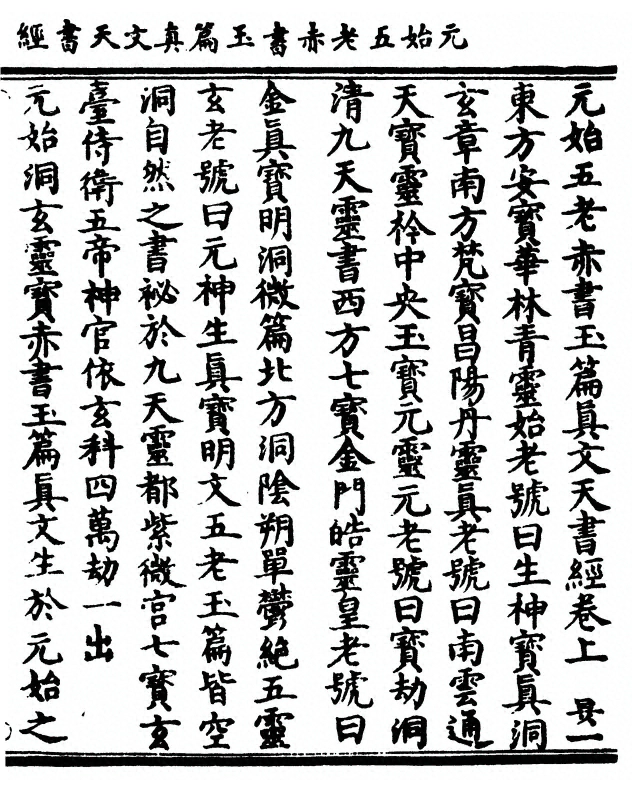 元始五老赤書玉篇真文天書經
元始五老赤書玉篇眞文天書經卷上　昃一
東方安寶華林青靈始老號曰生神寶眞洞
玄章南方梵寶昌陽丹靈眞老號曰南雲通
天寶靈衿中央玉寶元靈元老號曰寶劫洞
清九天靈書西方七寶金門皓靈皇老號曰
金眞寶明洞微篇北方洞陰朔單鬱絕五靈
玄老號曰元神生眞寶明文五老玉篇皆空
洞自然之書祕於九天靈都紫微宮七寶玄
臺侍衛五帝神官依玄科四萬劫一出
元始洞玄靈寶赤書玉篇眞文生於元始之